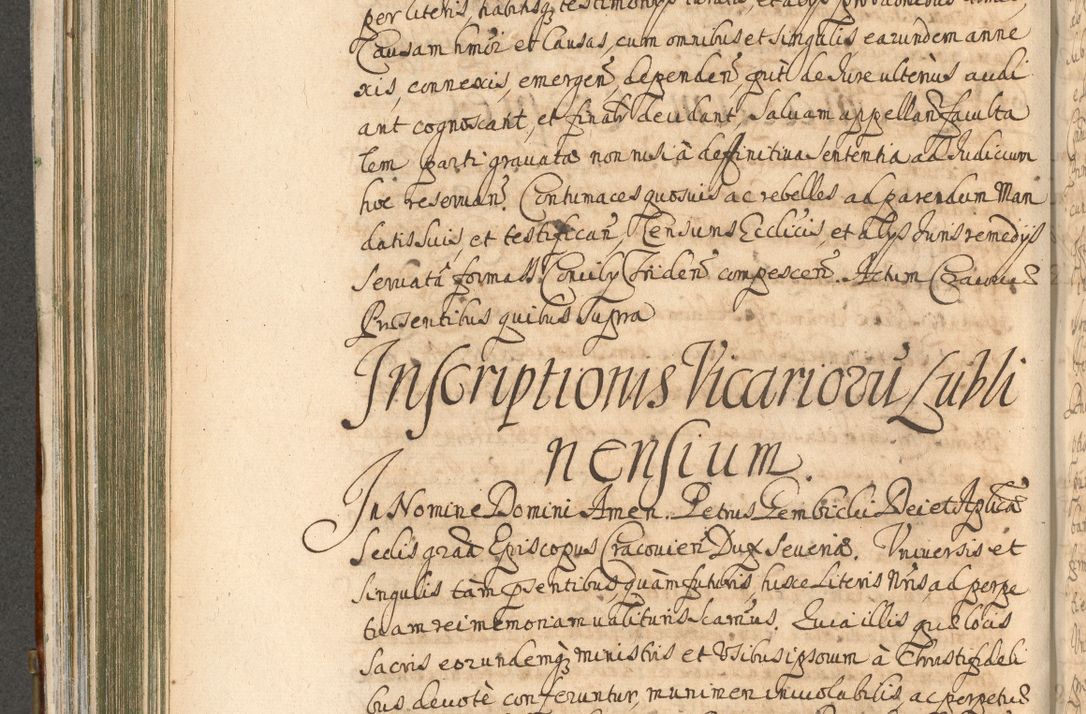 per literis, habitisq; testimonijs
Causam hmoi et Causas, cum omnibus et singulis, earundem anne
xis, connexis, emergen, dependen, put de Jure ulterius audi
ant cognoscant, et finalr decidant, Salvam appellandi faculta
tem parti gravatae non nisi à definitiva Sententia ad Judicium
hoc reservan. Contumaces quosvis ac rebelles ad parendum Man
datis suis, et testifican, Censuris Ecclicis, et alijs Juris remedijs
servata forma S. Concilij Triden compescen. Actum Cracoviae
Praesentibus quibus supra
Inscriptionis Vicarioru Lubli
nensium
In Nomine Domini Amen. Petrus Gembicki Dei et Aplicae
Sedis gratia Episcopus Cracovien Dux Severiae. Universis et
singulis tàm psentibus quàm futuris, hisce Literis Nris ad perpe
tuam rei memoriam valituris. Notum facimus. Quia illis quae locis
Sacris eorundemq; ministris et Usibus ipsorum à Christi fideli
bus devotè conferuntur, munimen inviolabilis, ac perpetuae